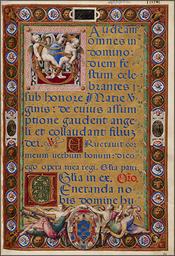 Audeam
omnes in
domino:
diem fe
stum cele
brantes
sub honore Marie Vir
ginis: de cuius assum
ptione gaudent angeli
et collaudant filiuz
dei. Eructauit cor
meum uerbum bonum: dico
ego opera mea regi. Gloria patri.
Esta in ex. Oro.
Eneranda no
bis domine hu